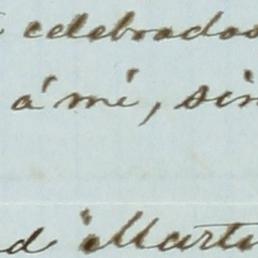 celebrados
á mí, sin
"Martin